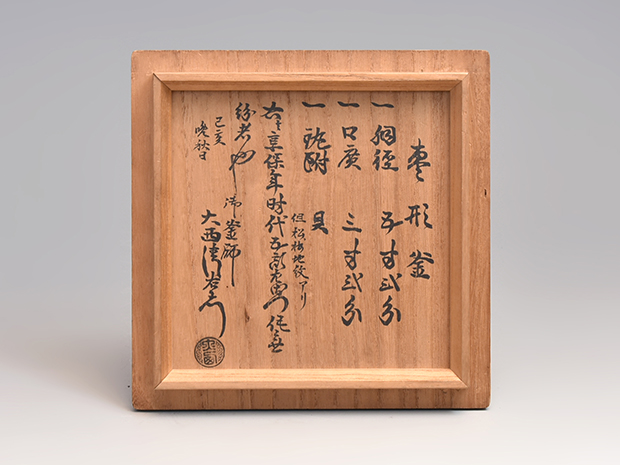 棗形釜
一 胴径 五寸弐分
一 口廣 三寸弐分
一 鐶附 貝
但松梅地紋アリ
右者享保年時代五郎左衛門作無
紛者也
御釜師
己亥
晩秋日
大西清右衛門